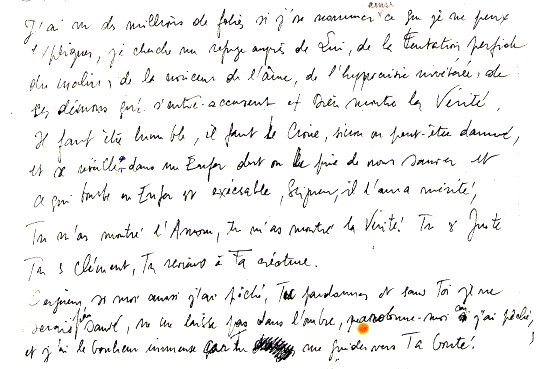 J'ai vu des millions de folies si j'ose nommer ce que je ne peux
expliquer, je cherche un refuge auprès de Lui, de la Tentation perfide
du malin, de la noirceur de l'âme, de l'hypocrisie invétérée, de
ses démons qui s'entre-accusent et Dieu montre la Vérité,
Il faut être humble, il faut le Croire, sinon on peut-être damné,
et se réveiller dans un Enfer dont on Le prie de nous sauver et
ce qui tombe en Enfer est exécrable, Seigneur, il l'aura mérité,
Tu m'as montré l'Amour, Tu m'as montré la Vérité! Tu es Juste
Tu es clément, Tu reviens à Ta créature.
Seigneur si moi aussi j'ai péché, Tu pardonnes et sans Toi je ne
serais pas sauvé, ne me laisse pas dans l'ombre, pardonne-moi car j'ai péché,
et j'ai le bonheur immense car tu me guides vers Ta bonté!